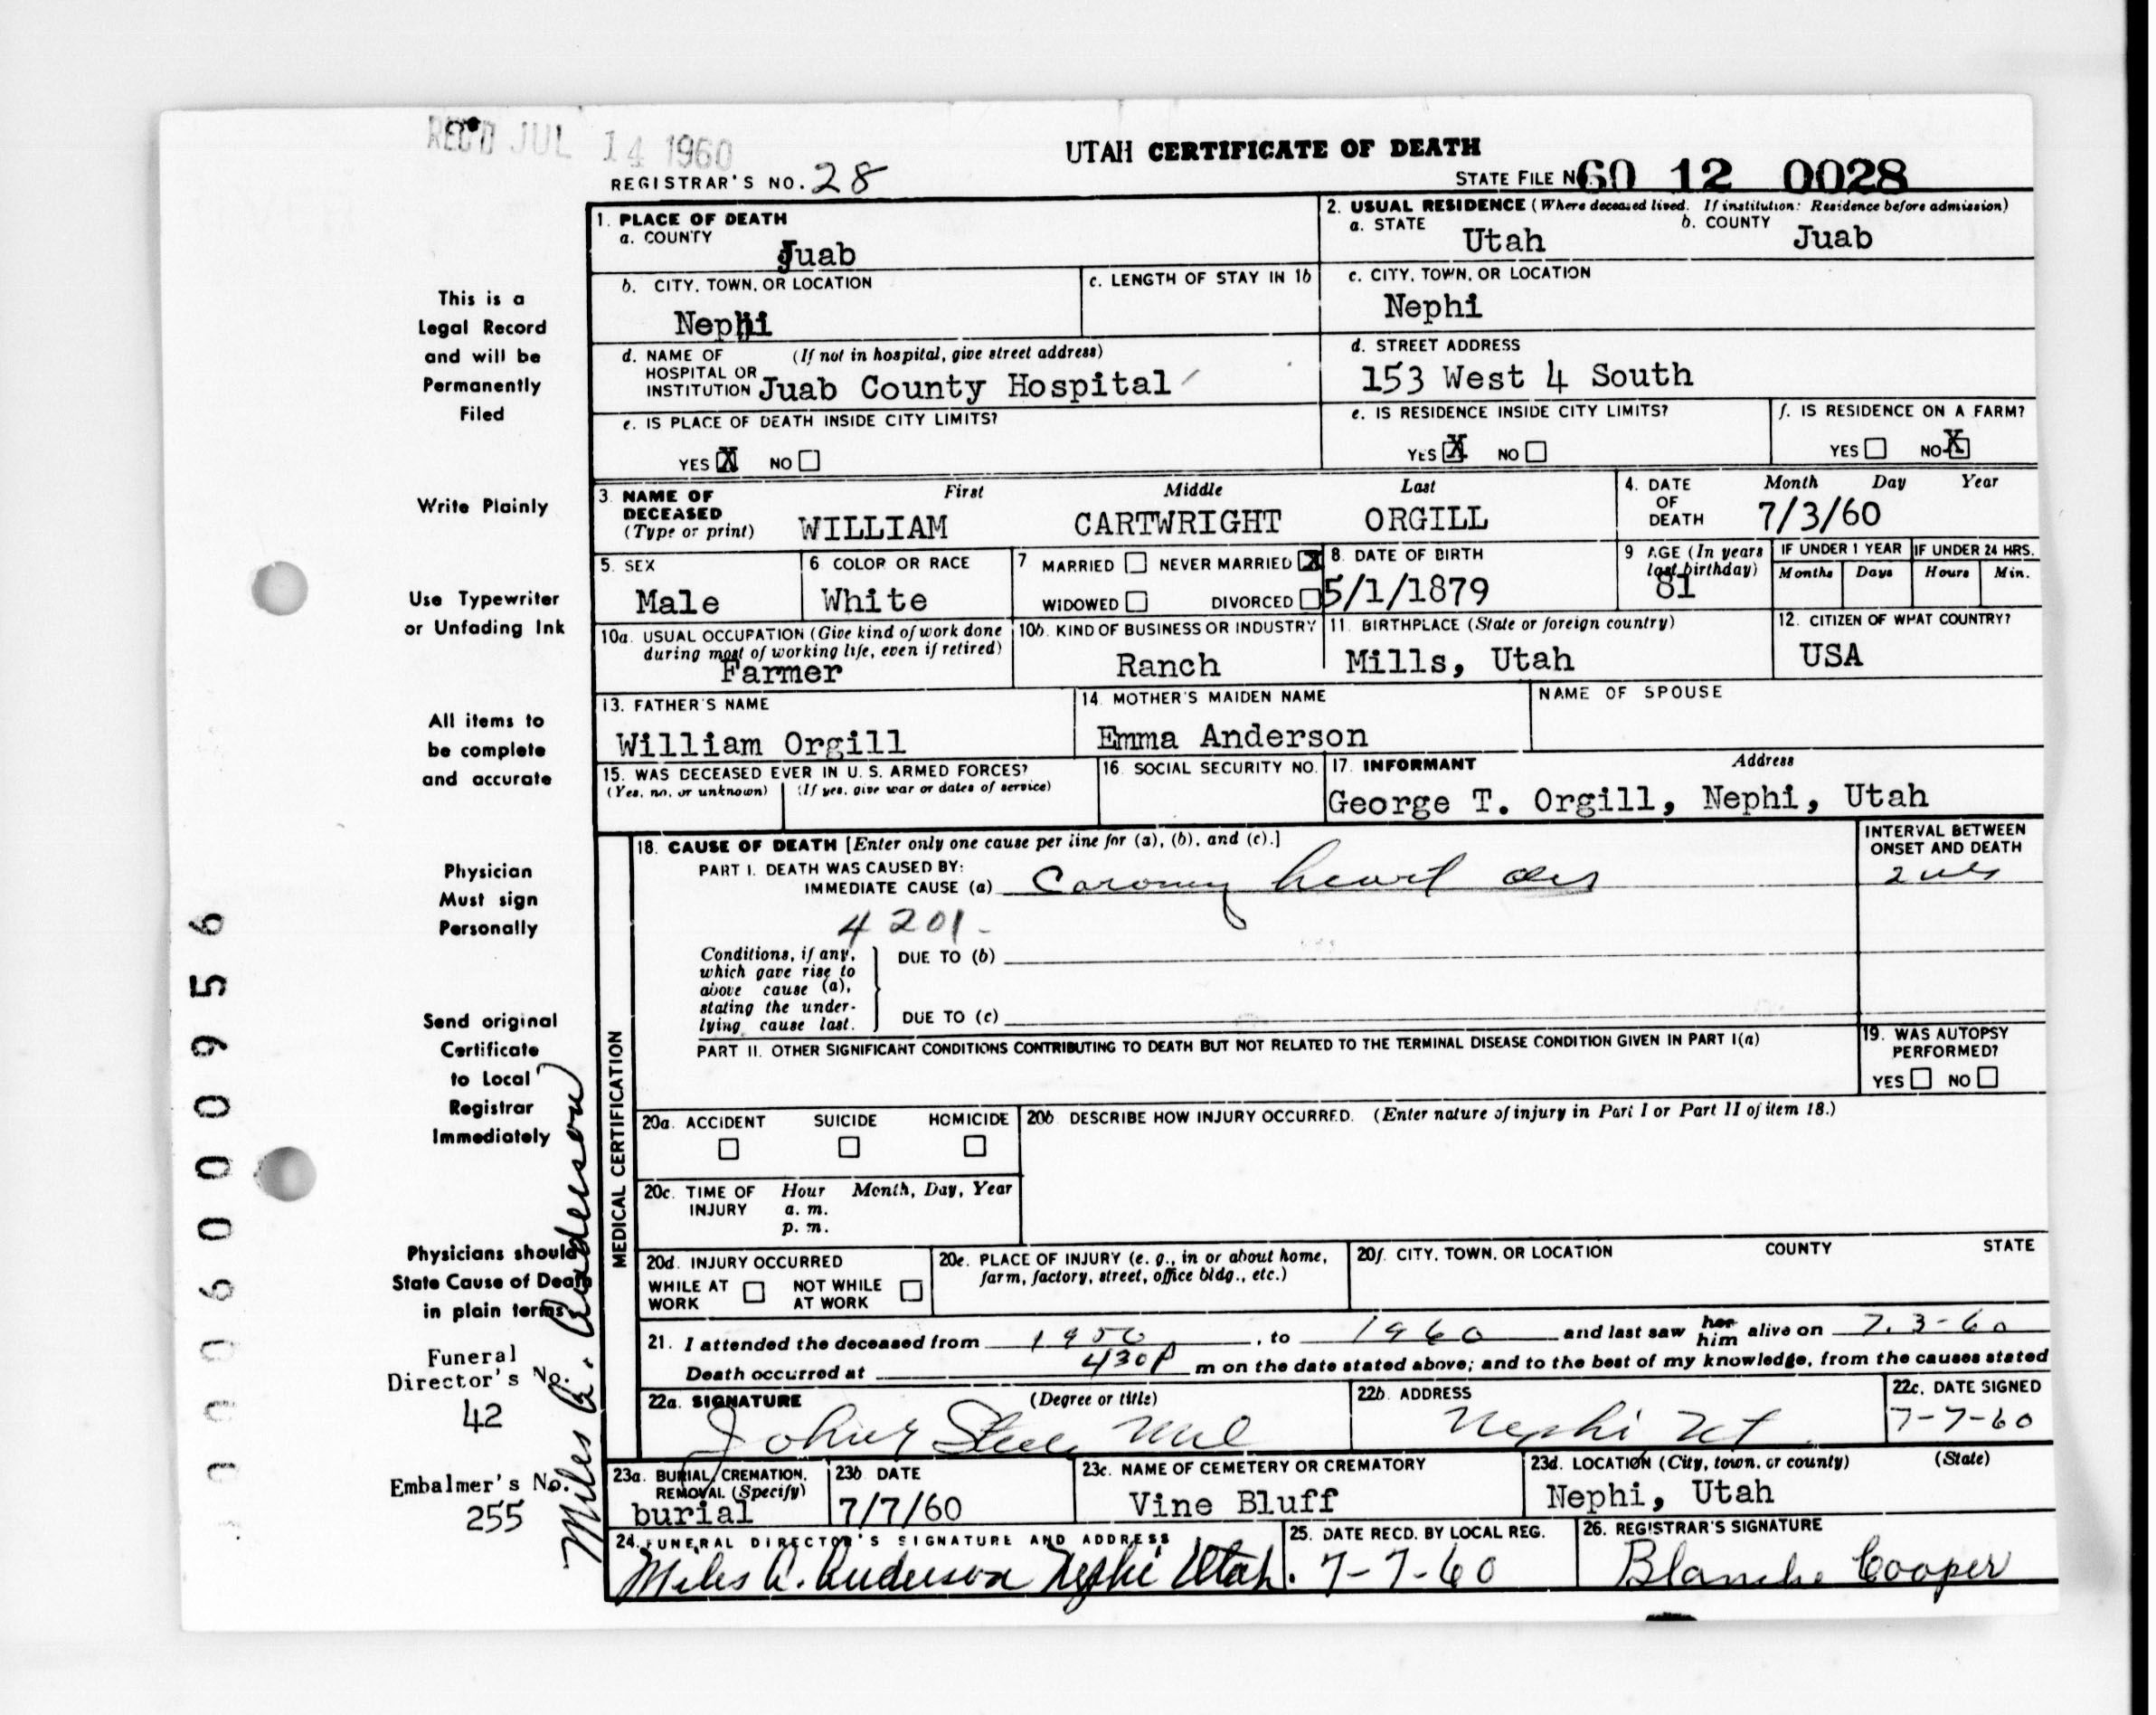 REC'D JUL 14 1960
UTAH CERTIFICATE OF DEATH
REGISTRAR'S NO. 28
STATE FILE NO. 60 12 0028
1. PLACE OF DEATH
a. COUNTY
Juab
2. USUAL RESIDENCE (Where deceased lived. If institution: Residence before admission)
a. STATE Utah b. COUNTY Juab
b. CITY, TOWN, OR LOCATION
Nephi
c. LENGTH OF STAY IN 1b
c. CITY, TOWN, OR LOCATION
Nephi
d. NAME OF (If not in hospital, give street address)
HOSPITAL OR
INSTITUTION Juab County Hospital
d. STREET ADDRESS
153 West 4 South
e. IS PLACE OF DEATH INSIDE CITY LIMITS?
YES X NO
e. IS RESIDENCE INSIDE CITY LIMITS?
YES X NO
f. IS RESIDENCE ON A FARM?
YES NO X
3. NAME OF
DECEASED
(Type or print)
First Middle Last
WILLIAM CARTWRIGHT ORGILL
4. DATE
OF
DEATH
Month Day Year
7/3/60
5. SEX
Male
6 COLOR OR RACE
White
7 MARRIED NEVER MARRIED X
WIDOWED DIVORCED
8. DATE OF BIRTH
5/1/1879
9 AGE (In years
last birthday)
81
IF UNDER 1 YEAR
Months Days
IF UNDER 24 HRS.
Hours Min.
10a. USUAL OCCUPATION (Give kind of work done
during most of working life, even if retired)
Farmer
10b. KIND OF BUSINESS OR INDUSTRY
Ranch
11. BIRTHPLACE (State or foreign country)
Mills, Utah
12. CITIZEN OF WHAT COUNTRY?
USA
13. FATHER'S NAME
William Orgill
14. MOTHER'S MAIDEN NAME
Emma Anderson
NAME OF SPOUSE
15. WAS DECEASED EVER IN U. S. ARMED FORCES?
(Yes, no, or unknown) (If yes, give war or dates of service)
16. SOCIAL SECURITY NO.
17. INFORMANT Address
George T. Orgill, Nephi, Utah
MEDICAL CERTIFICATION
18. CAUSE OF DEATH [Enter only one cause per line for (a), (b), and (c).]
PART I. DEATH WAS CAUSED BY:
IMMEDIATE CAUSE (a) Coronary heart dis
INTERVAL BETWEEN
ONSET AND DEATH
4201-
Conditions, if any,
which gave rise to
above cause (a),
stating the under-
lying cause last.
DUE TO (b)
DUE TO (c)
PART II. OTHER SIGNIFICANT CONDITIONS CONTRIBUTING TO DEATH BUT NOT RELATED TO THE TERMINAL DISEASE CONDITION GIVEN IN PART I(a)
19. WAS AUTOPSY
PERFORMED?
YES NO
20a. ACCIDENT SUICIDE HOMICIDE
20b. DESCRIBE HOW INJURY OCCURRED. (Enter nature of injury in Part I or Part II of item 18.)
20c. TIME OF Hour Month, Day, Year
INJURY a. m.
p. m.
20d. INJURY OCCURRED
WHILE AT NOT WHILE
WORK AT WORK
20e. PLACE OF INJURY (e. g., in or about home,
farm, factory, street, office bldg., etc.)
20f. CITY, TOWN, OR LOCATION COUNTY STATE
21. I attended the deceased from 1950, to 1960 and last saw her him alive on 7-3-60
Death occurred at 430P m on the date stated above; and to the best of my knowledge, from the causes stated
22a. SIGNATURE (Degree or title)
Steele MD
22b. ADDRESS
Nephi Ut
22c. DATE SIGNED
7-7-60
23a. BURIAL, CREMATION,
REMOVAL (Specify)
burial
23b DATE
7/7/60
23c. NAME OF CEMETERY OR CREMATORY
Vine Bluff
23d. LOCATION (City, town, or county) (State)
Nephi, Utah
24. FUNERAL DIRECTOR'S SIGNATURE AND ADDRESS
Miles A. Anderson Nephi Utah.
25. DATE RECD. BY LOCAL REG.
7-7-60
26. REGISTRAR'S SIGNATURE
Blanche Cooper
This is a
Legal Record
and will be
Permanently
Filed
Write Plainly
Use Typewriter
or Unfading Ink
All items to
be complete
and accurate
Physician
Must sign
Personally
Send original
Certificate
to Local
Registrar
Immediately
Physicians should
State Cause of Death
in plain terms
Funeral
Director's No.
42
Embalmer's No.
255
Miles A. Anderson
0006000956